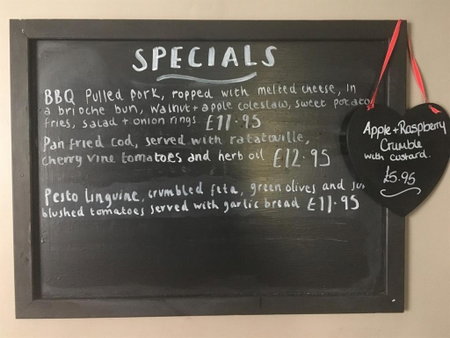 SPECIALS
BBQ Pulled pork, ropped with melted cheese, in
a brioche bun, walnut + apple coleslaw, sweet potato
fries, salad + onion rings. £11.95
Pan fried cod, served with ratatouille,
cherry vine tomatoes and herb oil £12.95
Pesto Linguine, crumbled feta, green olives and sun
blushed tomatoes served with garlic bread £11.95
Apple + Raspberry
Crumble
with custard.
£5.95